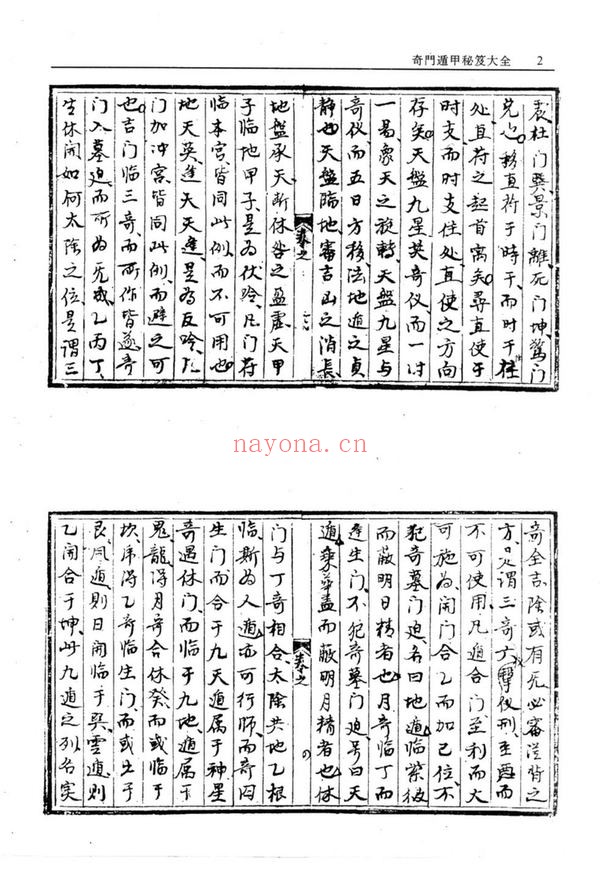 奇門遁甲秘笈大全 2
表杜门巽景门離死门坤驚门
兑也移直符于時干而时干住
处直符之起首寓矣尋直使于
时支而时支住处直使之方向
存矣天盤九星英奇仪而一时
一易象天之旋轉天盤九星与
奇仪而五日方移法地道之貞
静也天盤臨地審吉凶之消長
卷之一
地盤承天断休咎之盈虚天甲
子临地甲子是为伏吟凡门符
临本宫皆同此例而不可用也
地天英逢天蓬是为反吟凡
门加冲宫皆同此例而避之可
也吉门临三奇而所作皆遂奇
门入墓迫而所为无成乙丙丁
生休開如何太陰之位是谓三
nayona.cn
奇全吉陰或有无必審逆背之
方又谓三奇六仪刑至酉而
不可使用凡遁合门至利而大
可施为開门合乙而加己位不
犯奇墓门迫名曰地遁临紫彼
而蔽明日精者也月奇临丁而
逢生门不犯奇墓门迫号曰天
遁乗華盖而蔽明月精者也休
卷之
门与丁奇相合太陰共地乙根
临斯为人遁亦可行師而奇囚
生门而合于九天遁属于神星
奇遇休门而临于九地遁属于
鬼龍得月奇合休癸而或临于
坎虎得乙奇临生门而或生于
艮風遁则日開临于巽雲遁则
乙開合于坤此九遁之列名实